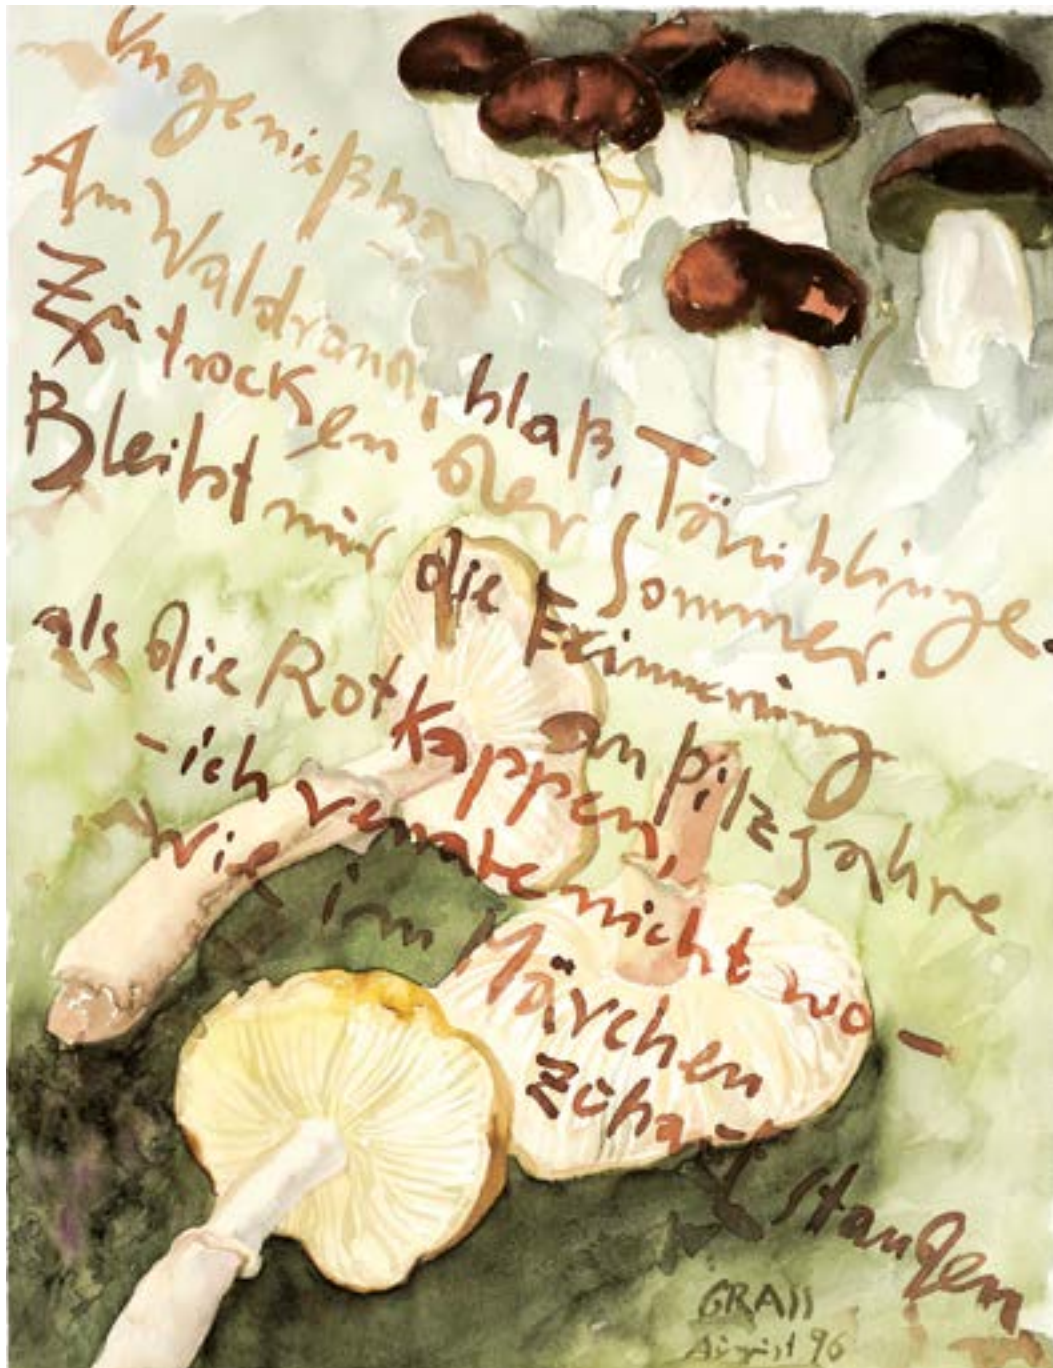 Ungenießbar
Am Waldrand, blaß, Täublinge.
Zu trocken der Sommer.
Bleibt nur die Erinnerung
an Pilzjahre
als die Rotkappen,
- ich verrate nicht wo -
wie im Märchen
zuhauf standen
GRASS
August 96